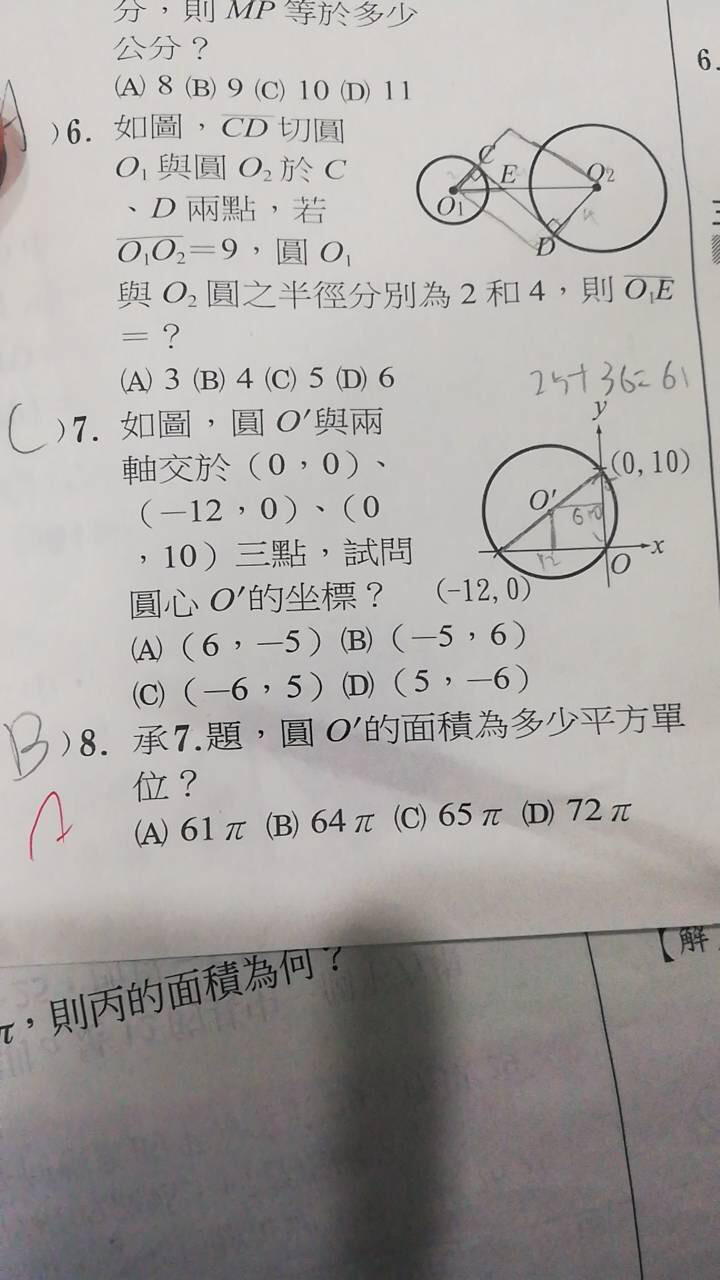 分，則 MP 等於多少
公分？
(A) 8 (B) 9 (C) 10 (D) 11
6.
)6. 如圖，CD 切圓
O₁ 與圓 O₂ 於 C
、D 兩點，若
O₁O₂＝9，圓 O₁
與 O₂ 圓之半徑分別為 2 和 4，則 O₁E
＝？
(A) 3 (B) 4 (C) 5 (D) 6
C
E
O₂
O₁
D
25+36=61
C )7. 如圖，圓 O′與兩
軸交於（0，0）、
（－12，0）、（0
，10）三點，試問
圓心 O′的坐標？
(A)（6，－5）(B)（－5，6）
(C)（－6，5）(D)（5，－6）
y
(0, 10)
O′
12
x
O
(-12, 0)
B )8. 承7.題，圓 O′的面積為多少平方單
位？
A
(A) 61π (B) 64π (C) 65π (D) 72π
【解
π，則丙的面積為何？